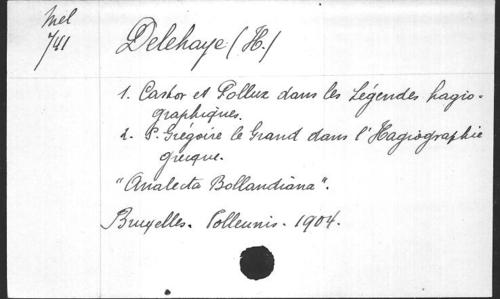 Mel
741
Delehaye (H.)
1. Castor et Pollux dans les Légendes hagio-
graphiques.
2. S. Grégoire le Grand dans l'Hagiographie
grecque.
"Analecta Bollandiana".
Bruxelles. Polleunis. 1904.